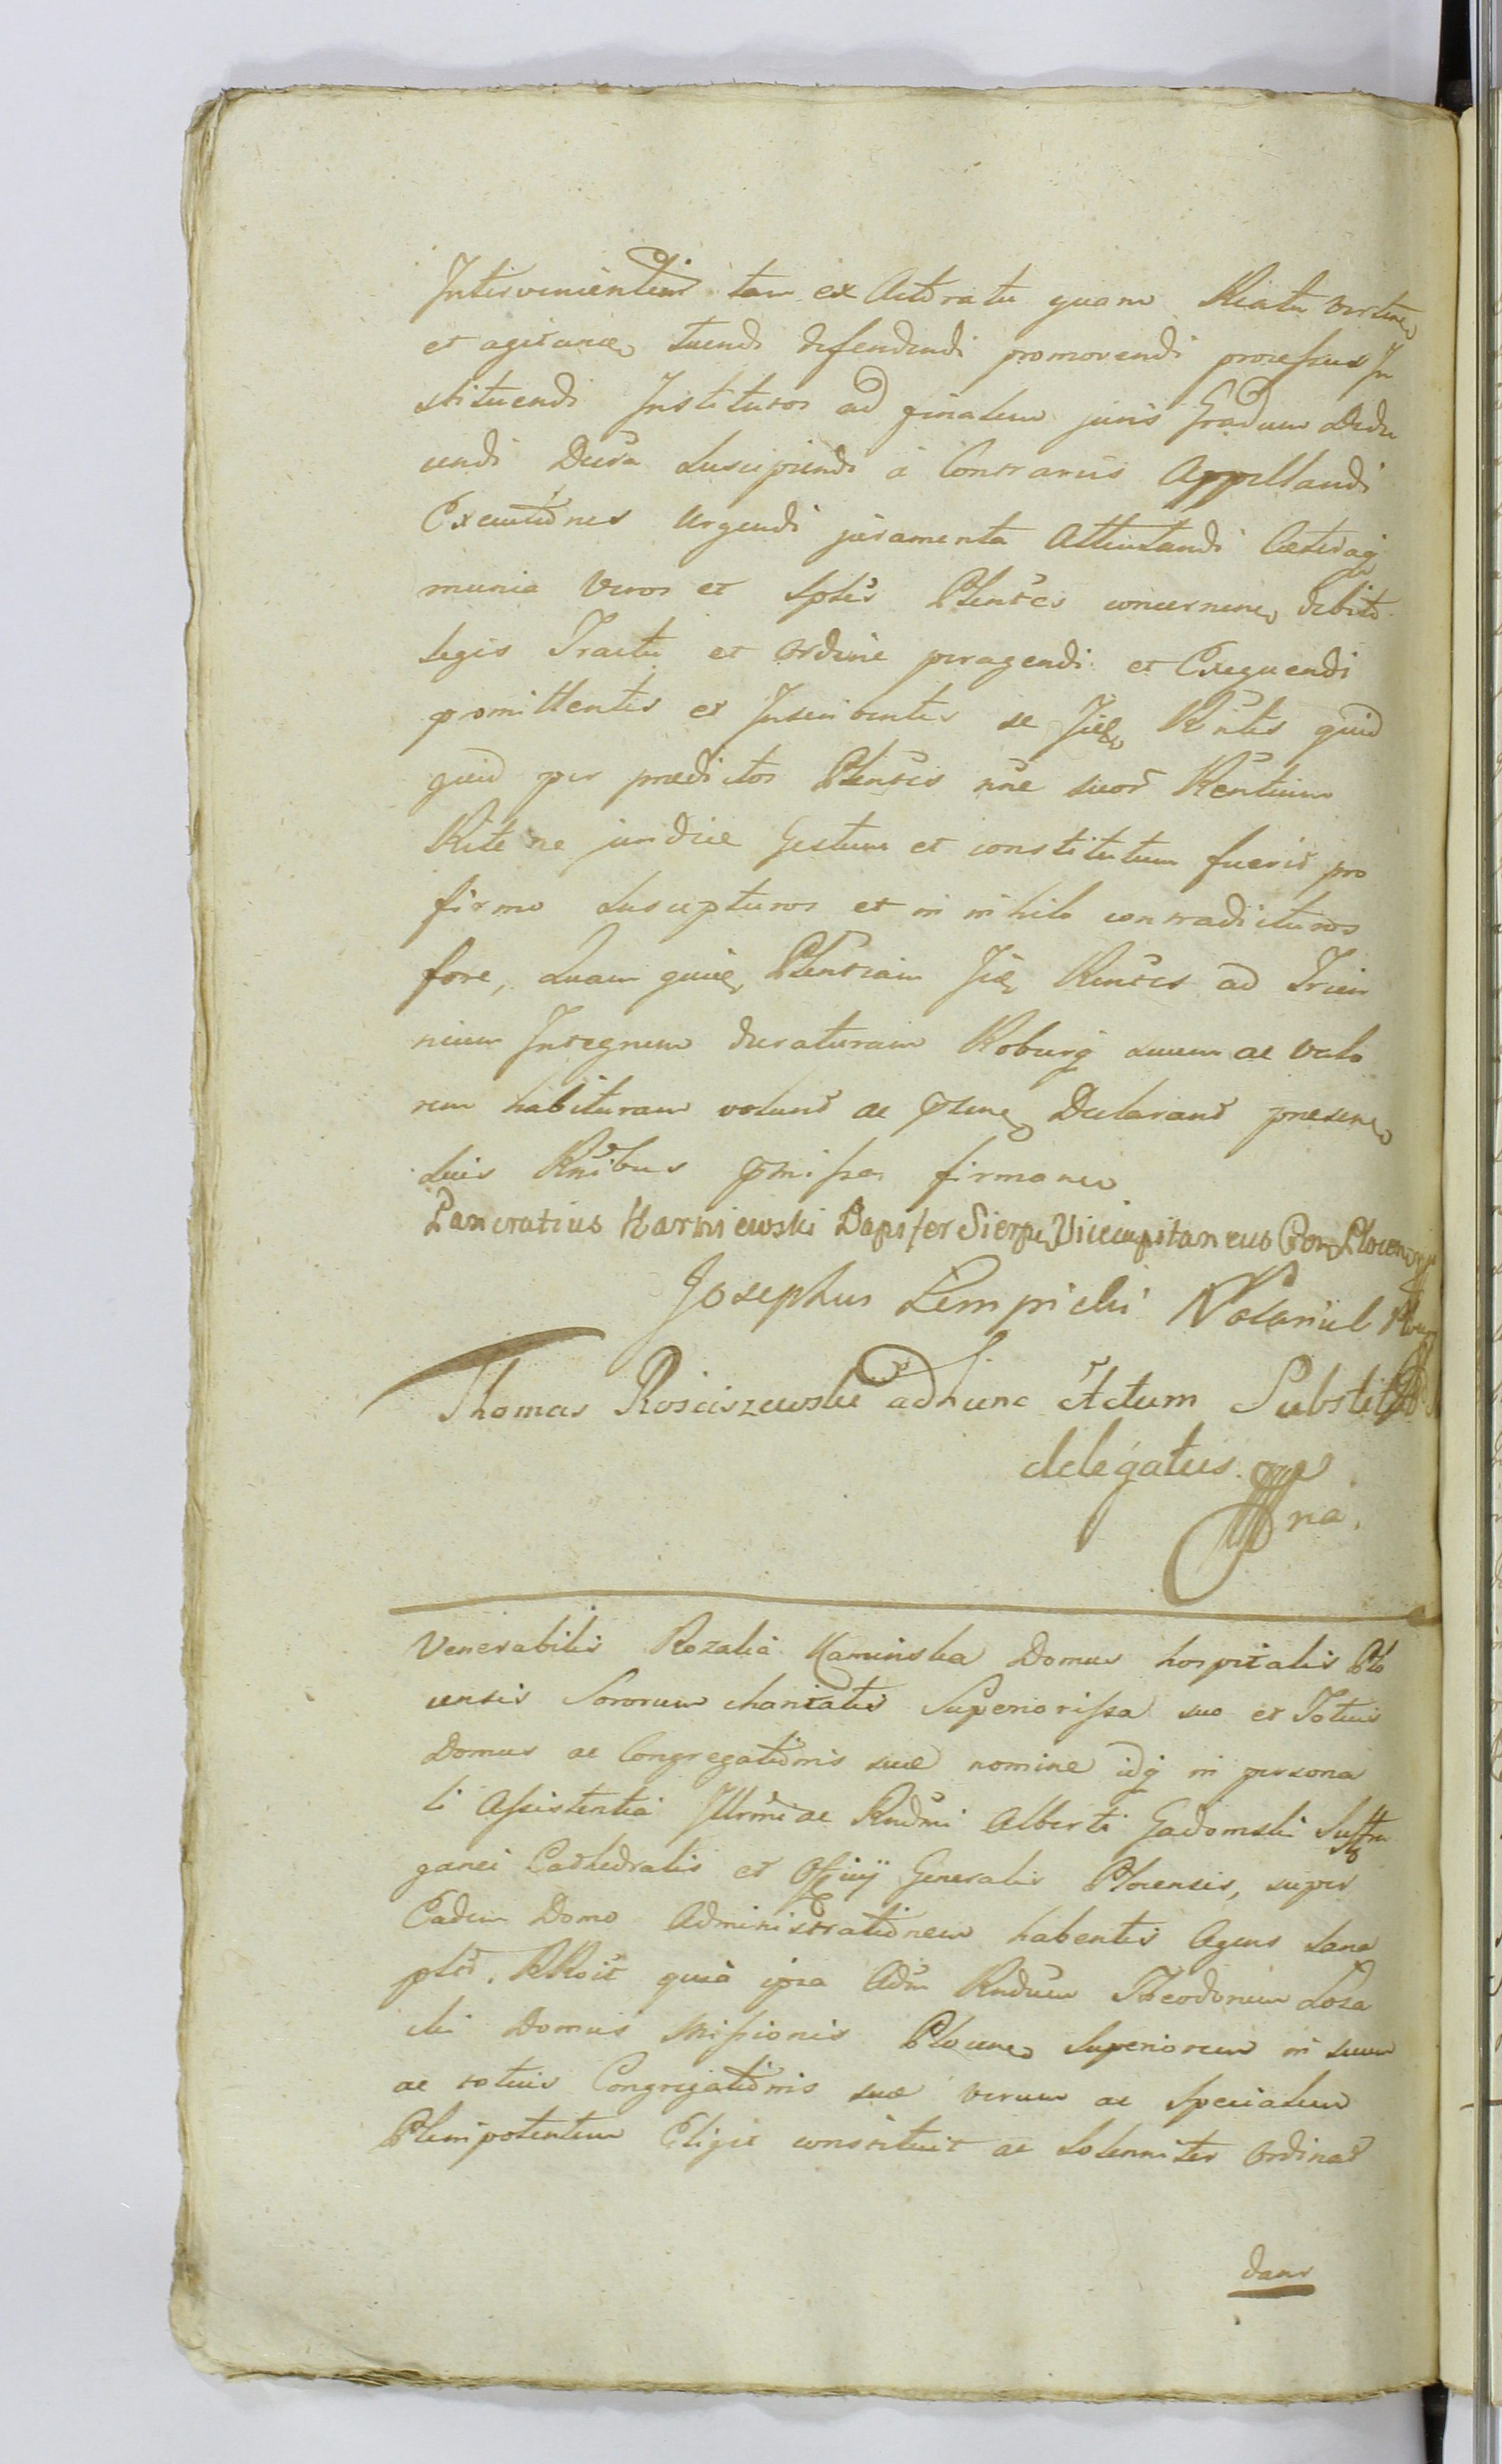 Intervenientium tam ex Actoratu quam Reatu verten
et agitan tuendi defendendi promovendi processus In
stituendi Institutos ad finalem juris Gradum Dedu
cendi Decra Suscipiendi à Contrariis Appellandi
Executiones Urgendi juramenta Attentandi Cæteraq
munia veros et sples Plentes concernen debito
legis Tractu et ordine peragendi et Exequendi
promittentes et Inscribentes se Iidem Rntes quid
quid per prædictos Plentes nne suor Rentium
Rite ac juridice Gestum et constitutum fuerit pro
firmo suscepturos et in nihilo contradicturos
fore, Quam quidem Plentiam Iidem Rentes ad Trien
nium Integrum duraturam Roburq suum ac valo
rem habituram volunt ac psen Declarant præsen
suis Rnibus pmissa firman
Pancratius Karniewski Dapifer Sierpc Vicecapitaneus Plocen
Josephus Lempicki Notariul
Thomas Rosciszewski ad hunc Actum Substit
delegatus
Venerabilis Rozalia Kaminska Domus hospitalis Plo
censis Sororum charitatis Superiorissa suo et Totius
Domus ac Congregationis suæ nomine idq in persona
li Assistentia Illrmi ac Rndmi Alberti Gadomski Suffra
ganei Cathedralis et Officij Generalis Plocensis, super
Eadem Domo Administrationem habentis Agens sana
pter. RRoit quia ipsa Adm Rndum Theodorum Losa
cki Domus Missionis Plocen Superiorem in suum
ac totius Congregationis suæ verum ac specialem
Plenipotentem Eligit constituit ac Solenniter Ordinat
dans